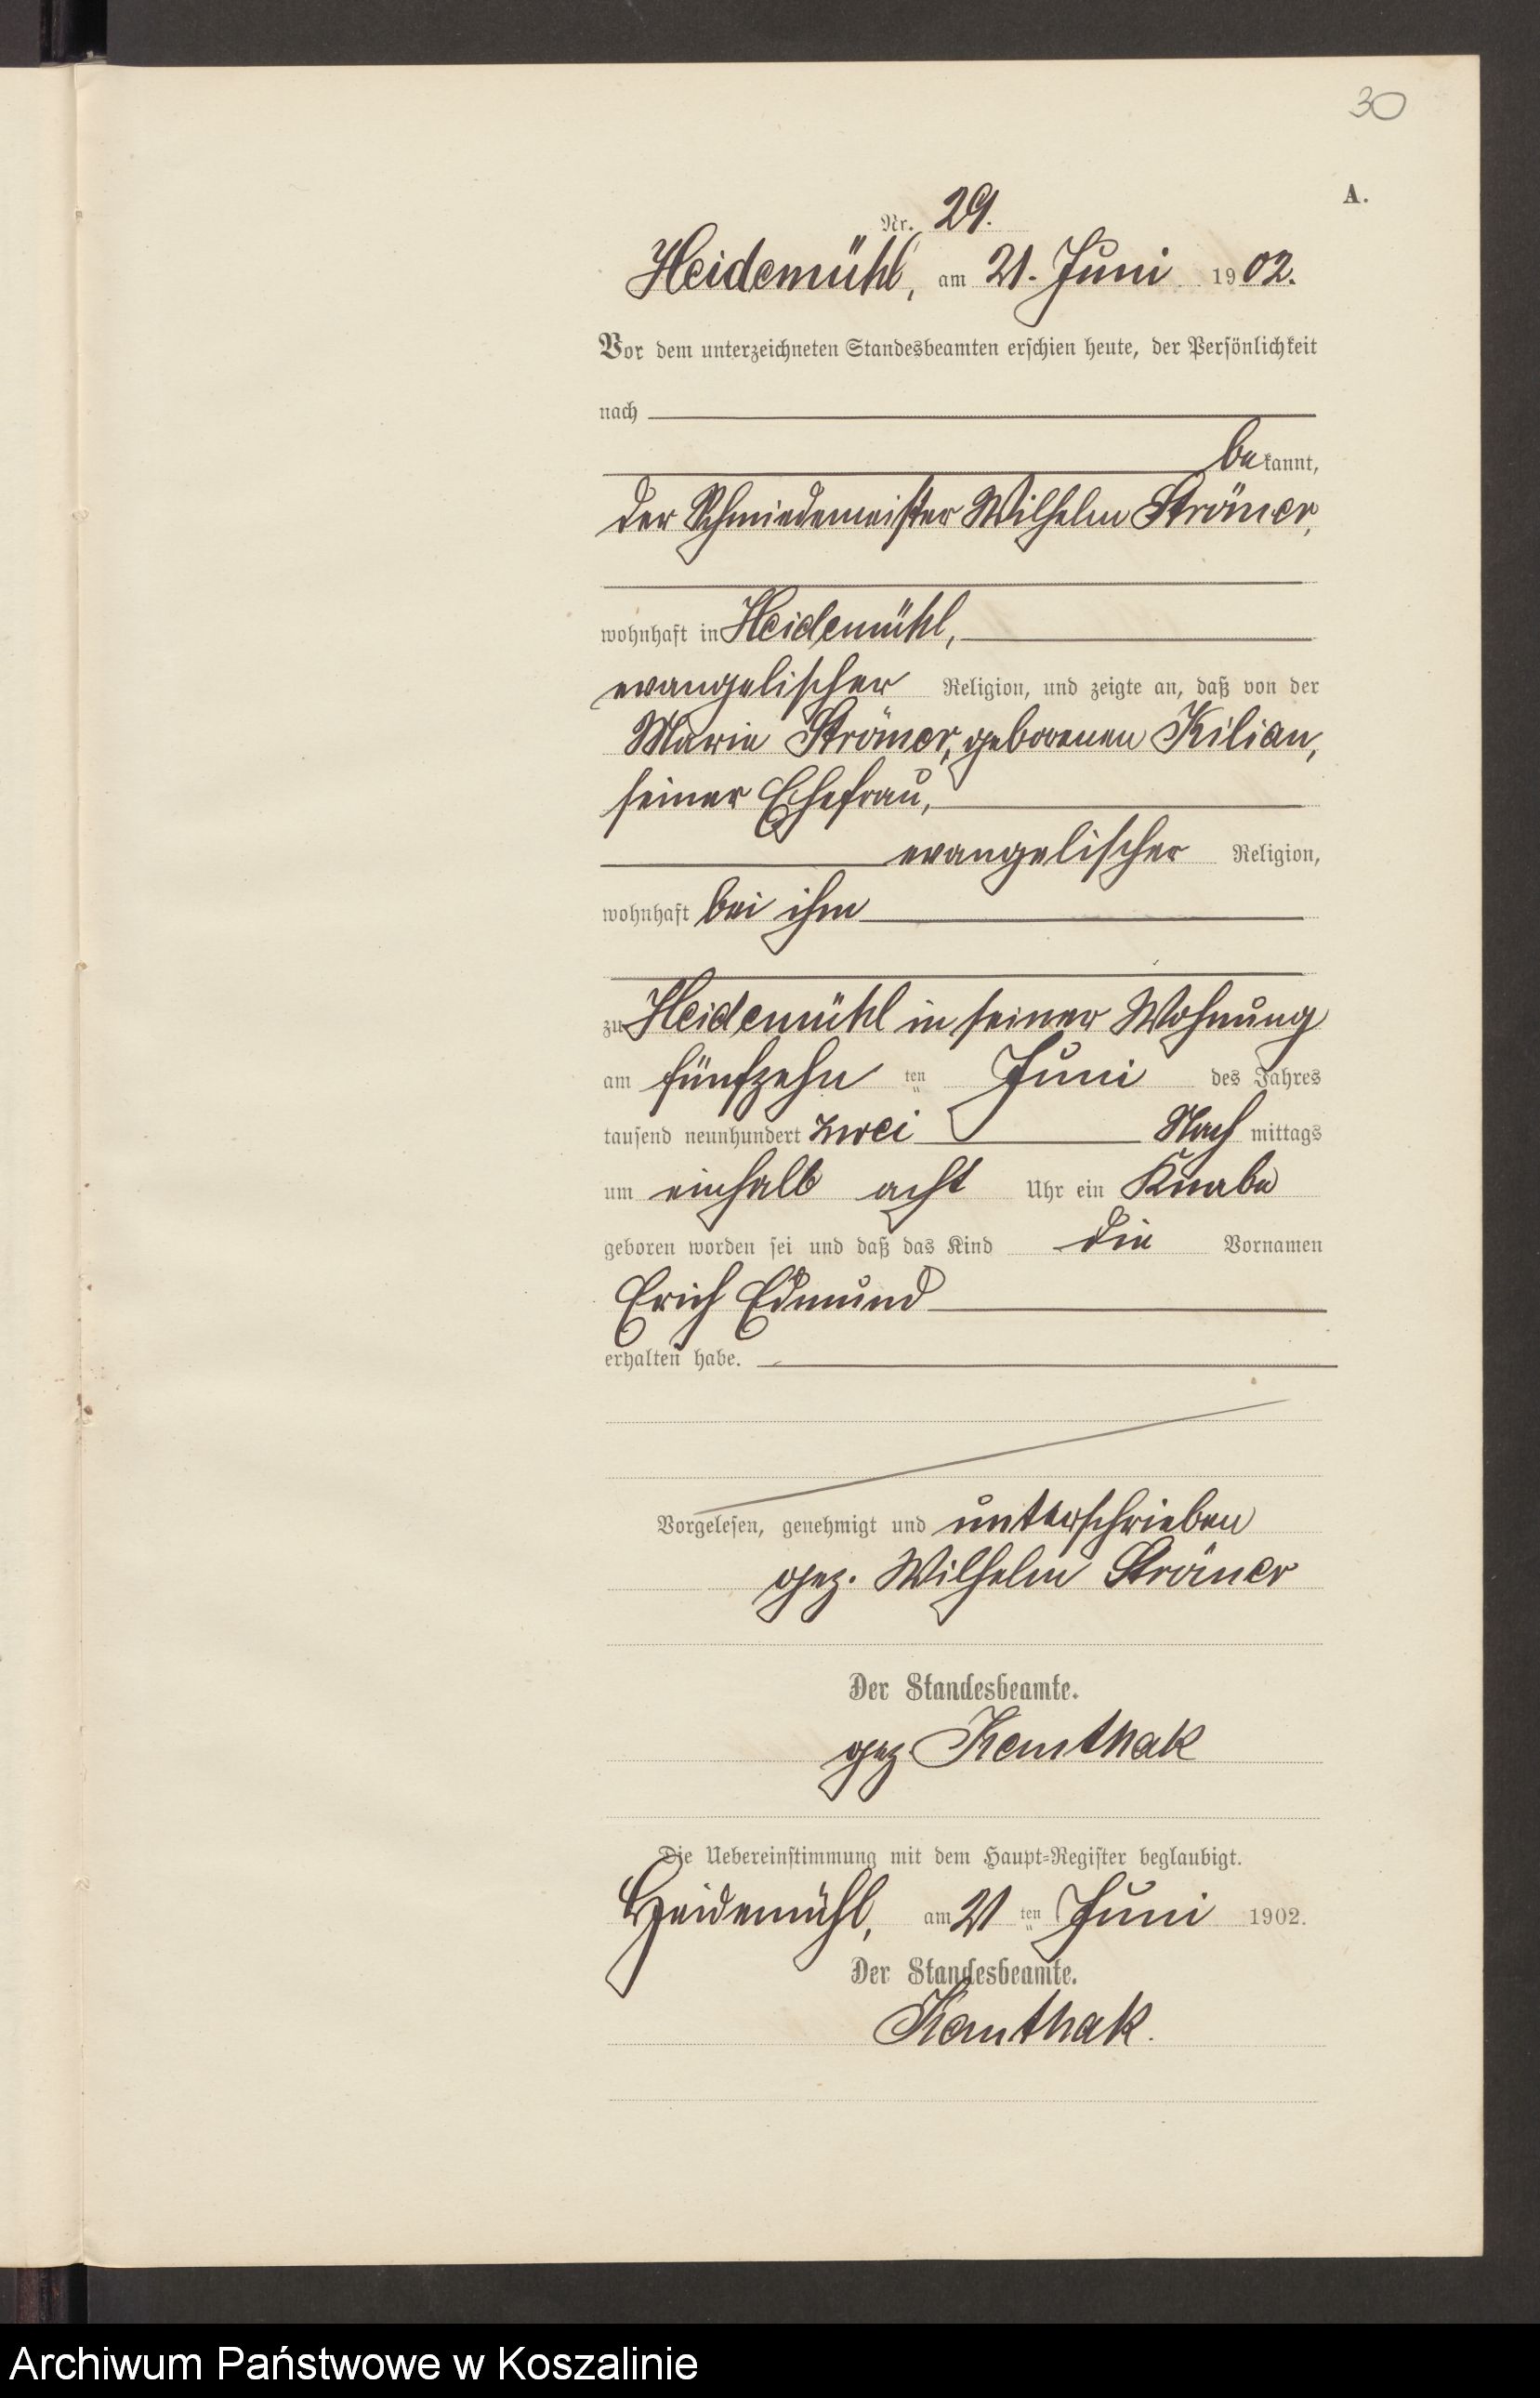 30
A.
Nr. 29.
Heidemühl, am 21. Juni 1902.
Vor dem unterzeichneten Standesbeamten erschien heute, der Persönlichkeit
nach
bekannt,
der Schmiedemeister Wilhelm Strömer,
wohnhaft in Heidemühl,
evangelischer Religion, und zeigte an, daß von der
Marie Strömer, geborenen Kilian,
seiner Ehefrau,
evangelischer Religion,
wohnhaft bei ihm
zu Heidemühl in seiner Wohnung
am fünfzehn ten Juni des Jahres
tausend neunhundert zwei Nachmittags
um einhalb acht Uhr ein Knabe
geboren worden sei und daß das Kind die Vornamen
Erich Edmund
erhalten habe.
Vorgelesen, genehmigt und unterschrieben
gez. Wilhelm Strömer
Der Standesbeamte.
gez Kemthak
Die Uebereinstimmung mit dem Haupt-Register beglaubigt.
Heidemühl, am 21 ten Juni 1902.
Der Standesbeamte.
Archiwum Państwowe w Koszalinie